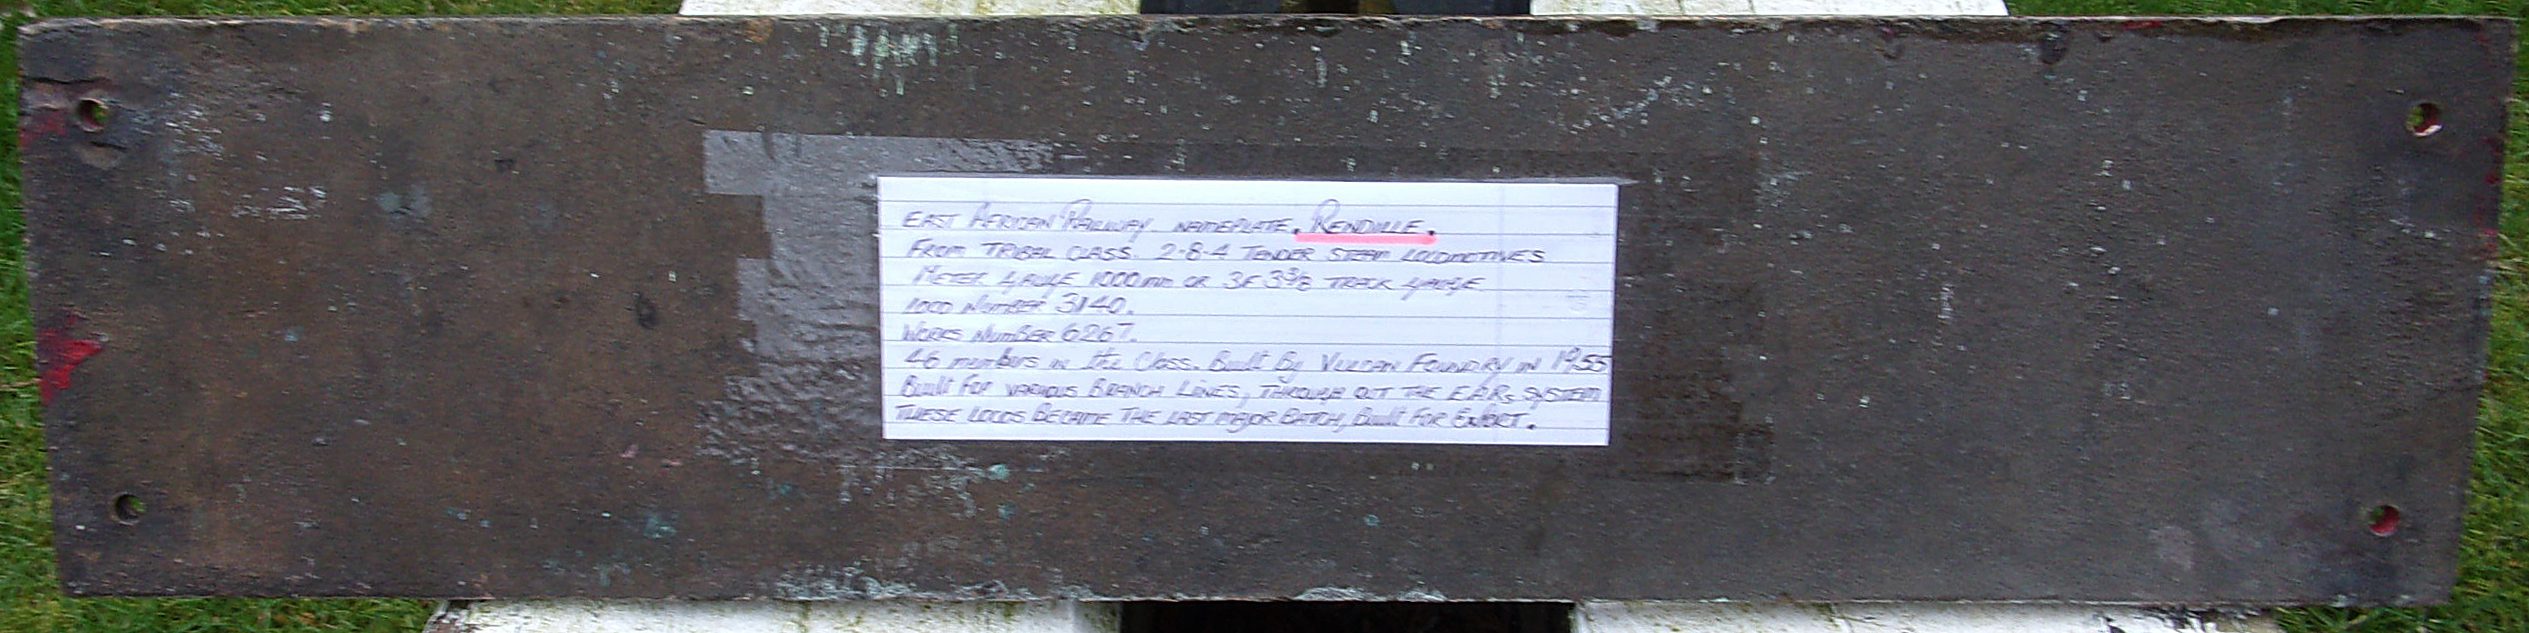 EAST AFRICAN RAILWAY NAMEPLATE. RENDILLE.
FROM TRIBAL CLASS. 2-8-4 TENDER STEAM LOCOMOTIVES
METER GAUGE 1000mm OR 3F 3 3/8 TRACK GAUGE
LOCO NUMBER 3140.
WORKS NUMBER 6267.
46 members in the Class. Built By VULCAN FOUNDRY IN 1955
Built FOR VARIOUS BRANCH LINES, THROUGH OUT THE E.A.Rs SYSTEM
THESE LOCOS BECAME THE LAST MAJOR BATCH, Built FOR EXPORT.